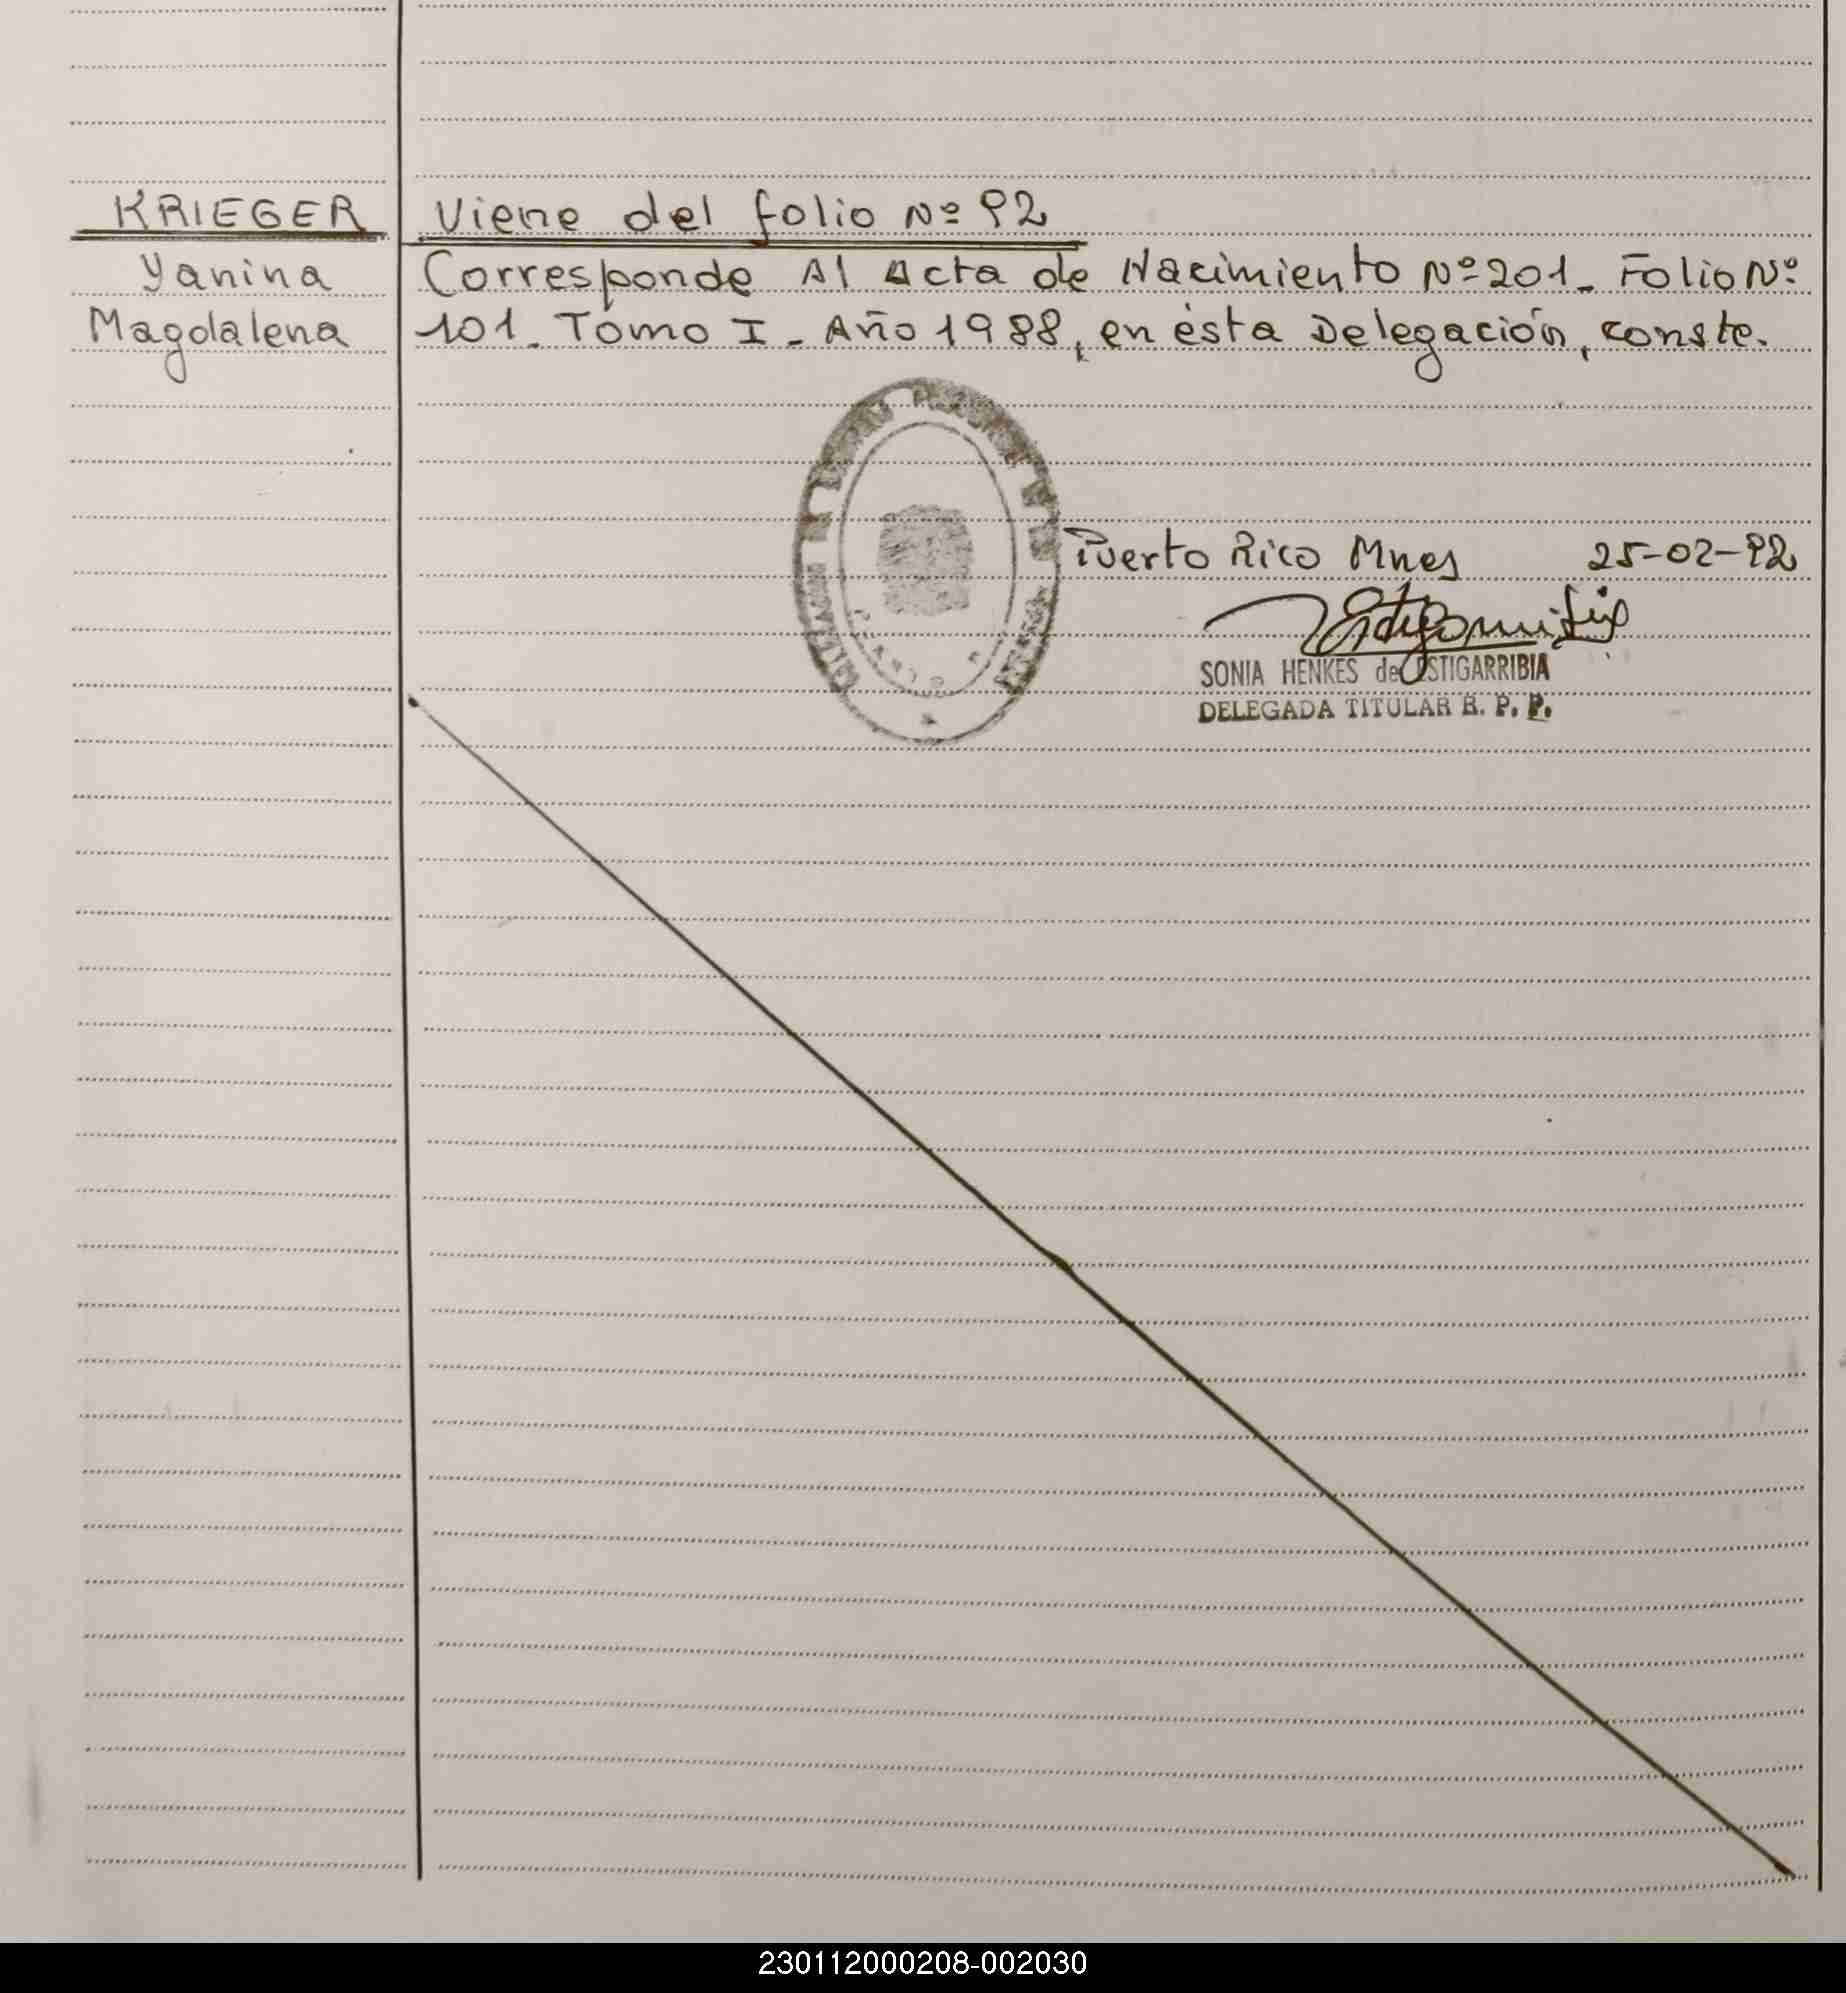 KRIEGER Viene del folio Nº 92
Yanina Corresponde Al Acta de Nacimiento Nº 201_ Folio Nº
Magdalena 101_ Tomo I_ Año 1988, en ésta Delegación, conste.
Puerto Rico Mnes 25-02-92
SONIA HENKES de ESTIGARRIBIA
DELEGADA TITULAR R. P. P.
230112000208-002030